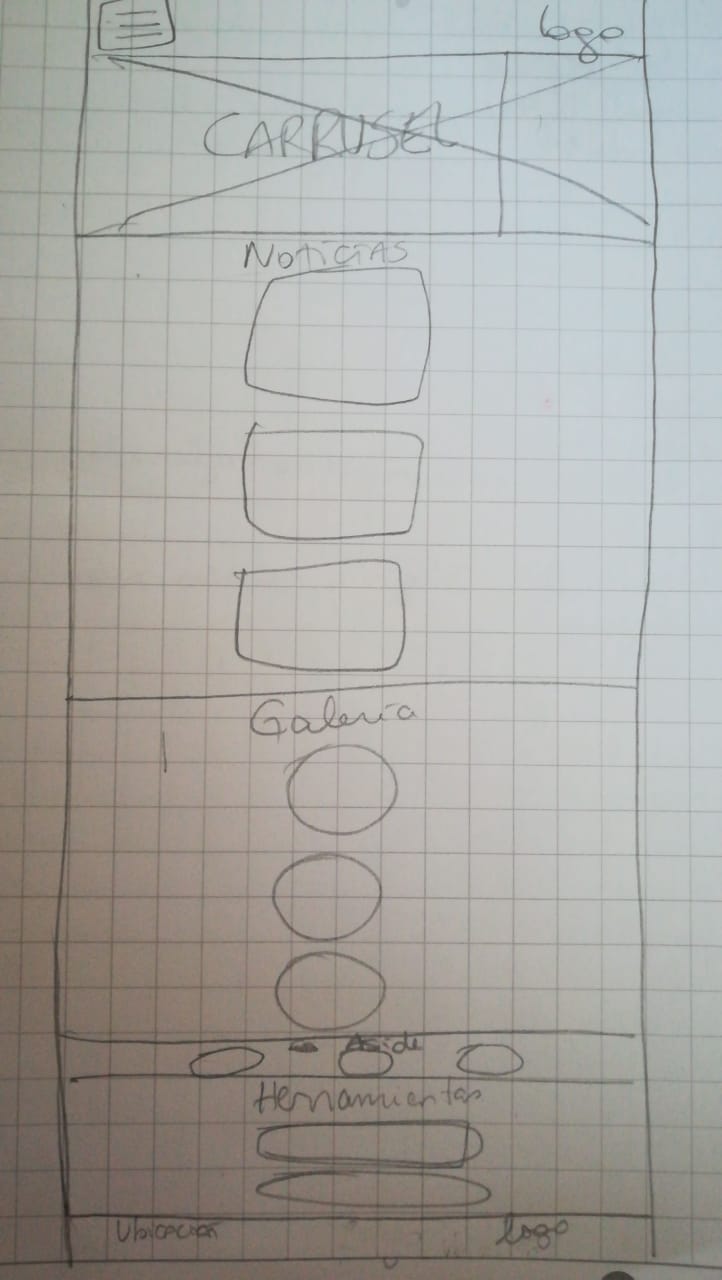 logo
CARRUSEL
NOTICIAS
Galería
Aside
Herramientas
Ubicación
logo